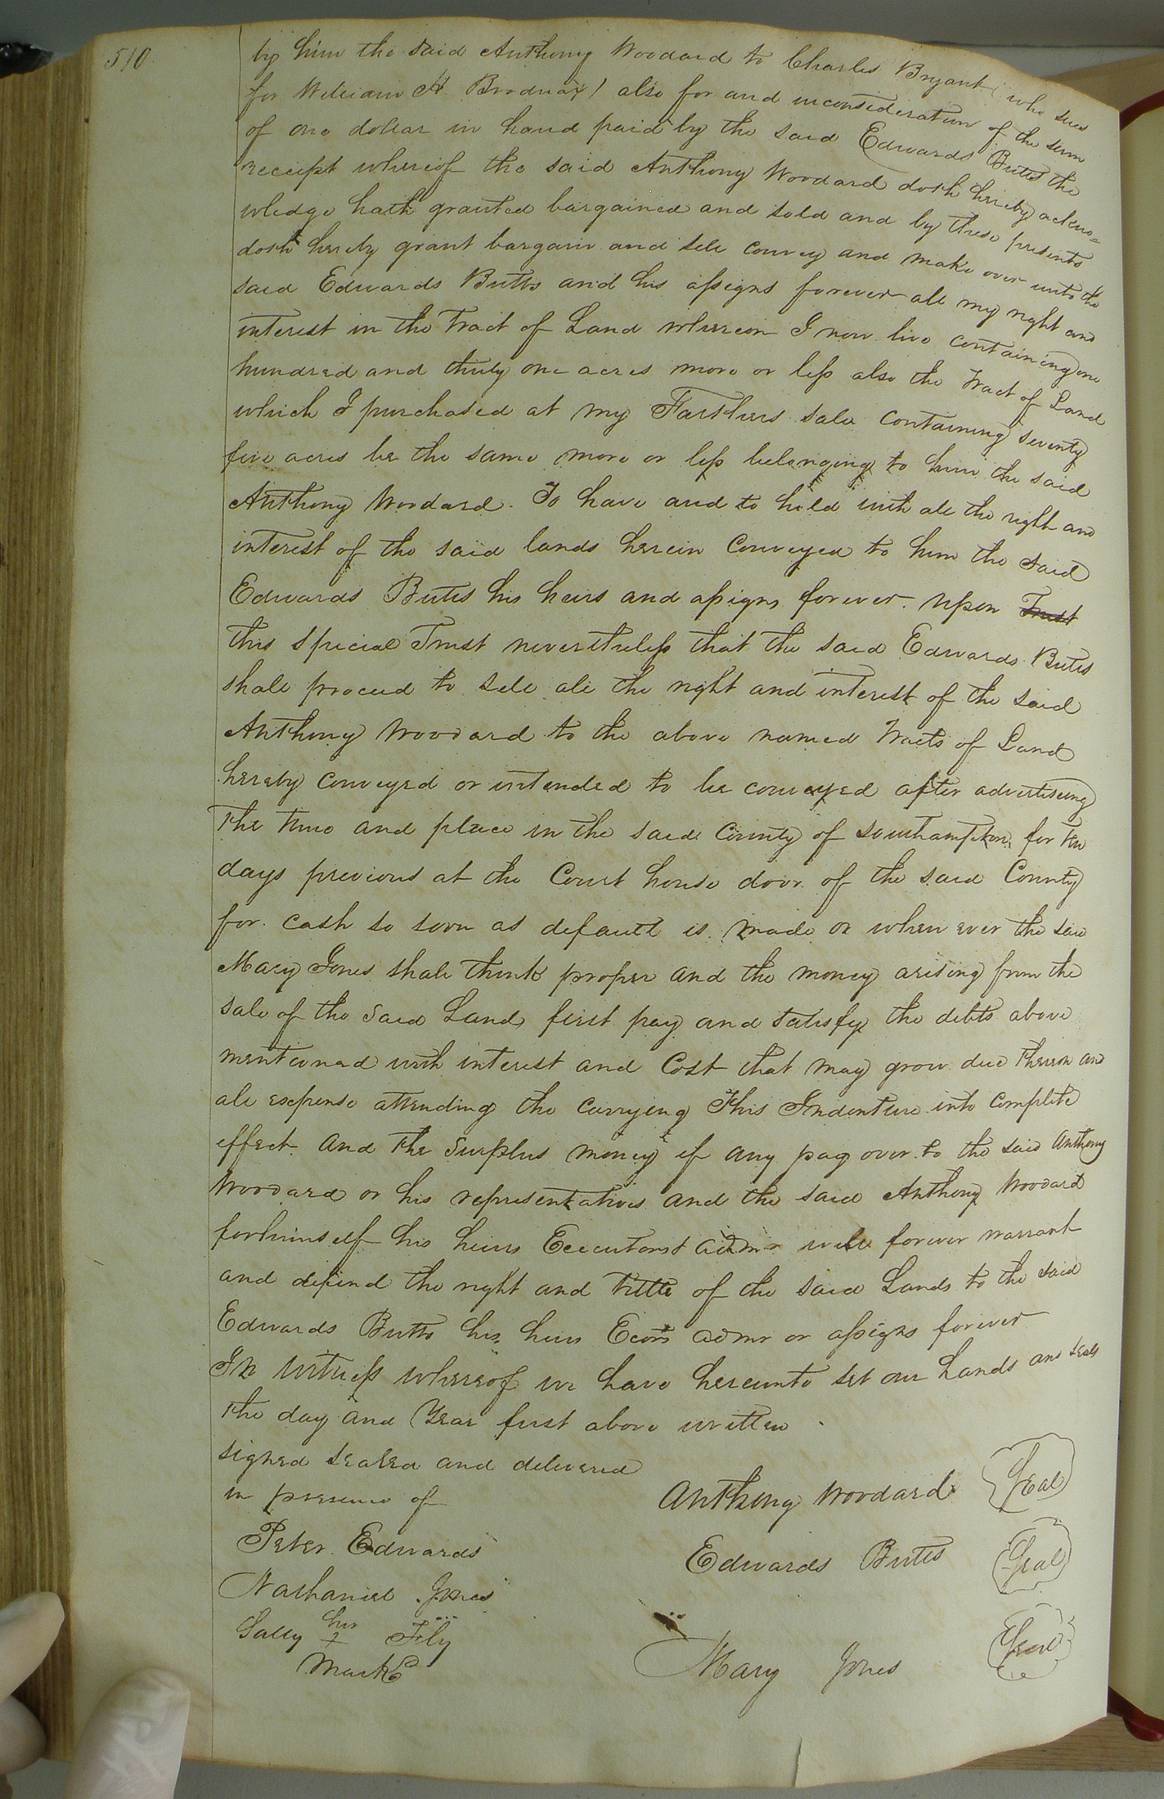 510
by him the said Anthony Woodard to Charles Bryant (who sues
for William H. Brodnax) also for and inconsideration of the sum
of one dollar in hand paid by the said Edwards Butts the
receipt whereof the said Anthony Woodard doth hereby ackno=
wledge hath granted bargained and sold and by these presents
doth hereby grant bargain and sele convey and make over unto the
said Edwards Butts and his assigns forever all my right and
interest in the Tract of Land whereon I now live containing one
hundred and thirty one acres more or less also the Tract of Land
which I purchased at my Farthers sale containing seventy
five acres be the same more or less belonging to him the said
Anthony Woodard. To have and to hold with all the right and
interest of the said lands herein Conveyed to him the said
Edwards Butts his heirs and assigns forever. Upon Trust
this special Trust nevertheless that the said Edwards Butts
shall proceed to sele all the right and interest of the said
Anthony Woodard to the above named Tracts of Land
hereby conveyed or intended to be conveyed after advertising
The time and place in the said County of Southampton for ten
days previous at the Court house door of the said County
for cash so soon as default is made or when ever the said
Mary Jones shall think proper and the money arising from the
sale of the said Land first pay and satisfy the debts above
mentioned with interest and Cost that may grow due thereon and
all expense attending the carrying This Indenture into complete
effect and the surplus money if any pay over to the said Anthony
Woodard or his representatives and the said Anthony Woodard
forhimself his heirs Executors & admr will forever warrant
and defend the right and title of the said Lands to the said
Edwards Butts his heirs Ecors admr or assigns forever
In witness whereof we have hereunto set our hands and seals
the day and Year first above written
signed sealed and delivered
in presence of
Anthony Woodard Seal
Peter Edwards
Edwards Butts Seal
Nathaniel Jones
Sally her
Mark
Mary Jones Seal